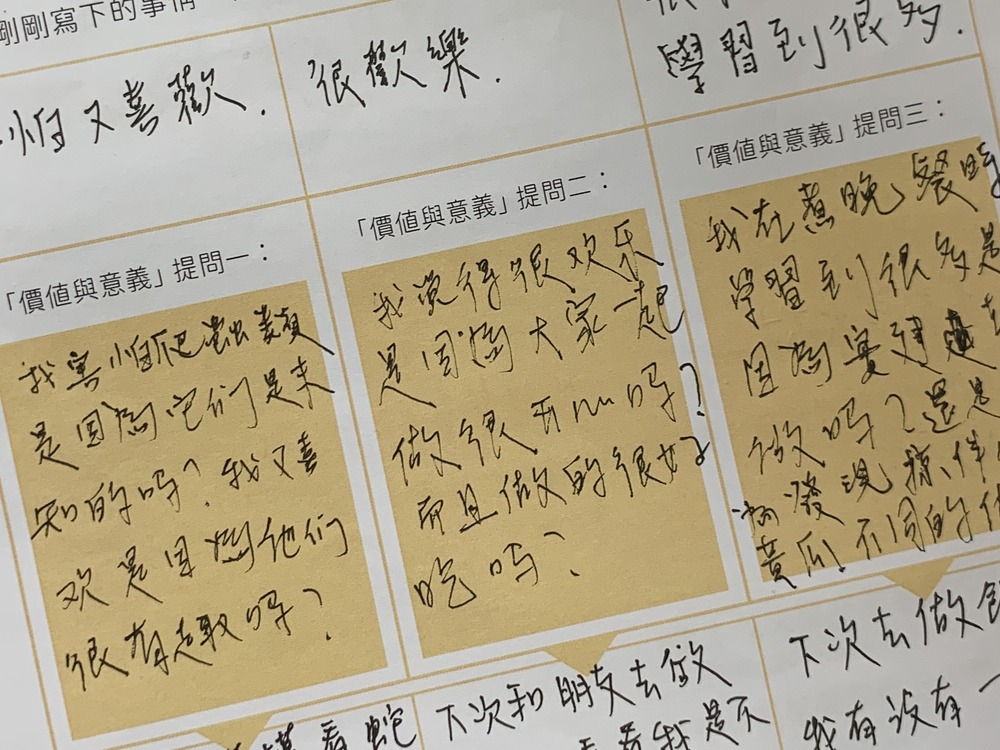 剛剛寫下的事情
怕又喜歡.
很歡樂.
學習到很多.
「價值與意義」提問一：
我害怕爬蟲類
是因為它们是未
知的吗？我又喜
欢是因為他们
很有趣取吗？
「價值與意義」提問二：
我觉得很欢乐
是因為大家一起
做很开nu吗？
而且做的很好
吃吗？
「價值與意義」提問三：
我在煮晚餐時
學習到很多是
因為實
做吗？還是
發現
黃瓜不同的
看蛇
下次和朋友去做
我是不
下次去做
我有没有一